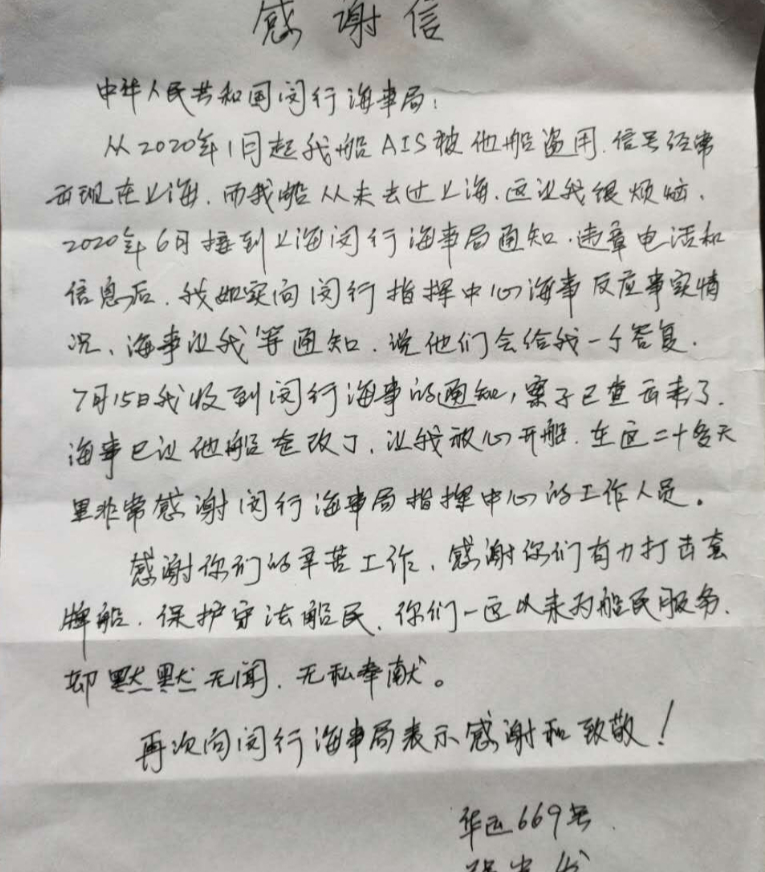 感谢信
中华人民共和国闵行海事局：
从2020年1月起我船AIS被他船盗用.信号经常
出现在上海.而我船从未去过上海.这让我很烦恼.
2020年6月接到上海闵行海事局通知.违章电话和
信息后.我如实向闵行指挥中心海事反应事实情
况、海事让我等通知.说他们会给我一个答复.
7月15日我收到闵行海事的通知,案子已查出来了.
海事已让他船在改了.让我放心开船.在这二十多天
里非常感谢闵行海事局指挥中心的工作人员。
感谢你们的辛苦工作、感谢你们有力打击套
牌船.保护守法船民.你们一直以来为船民服务.
却默默无闻.无私奉献。
再次向闵行海事局表示感谢和致敬！
华运669号